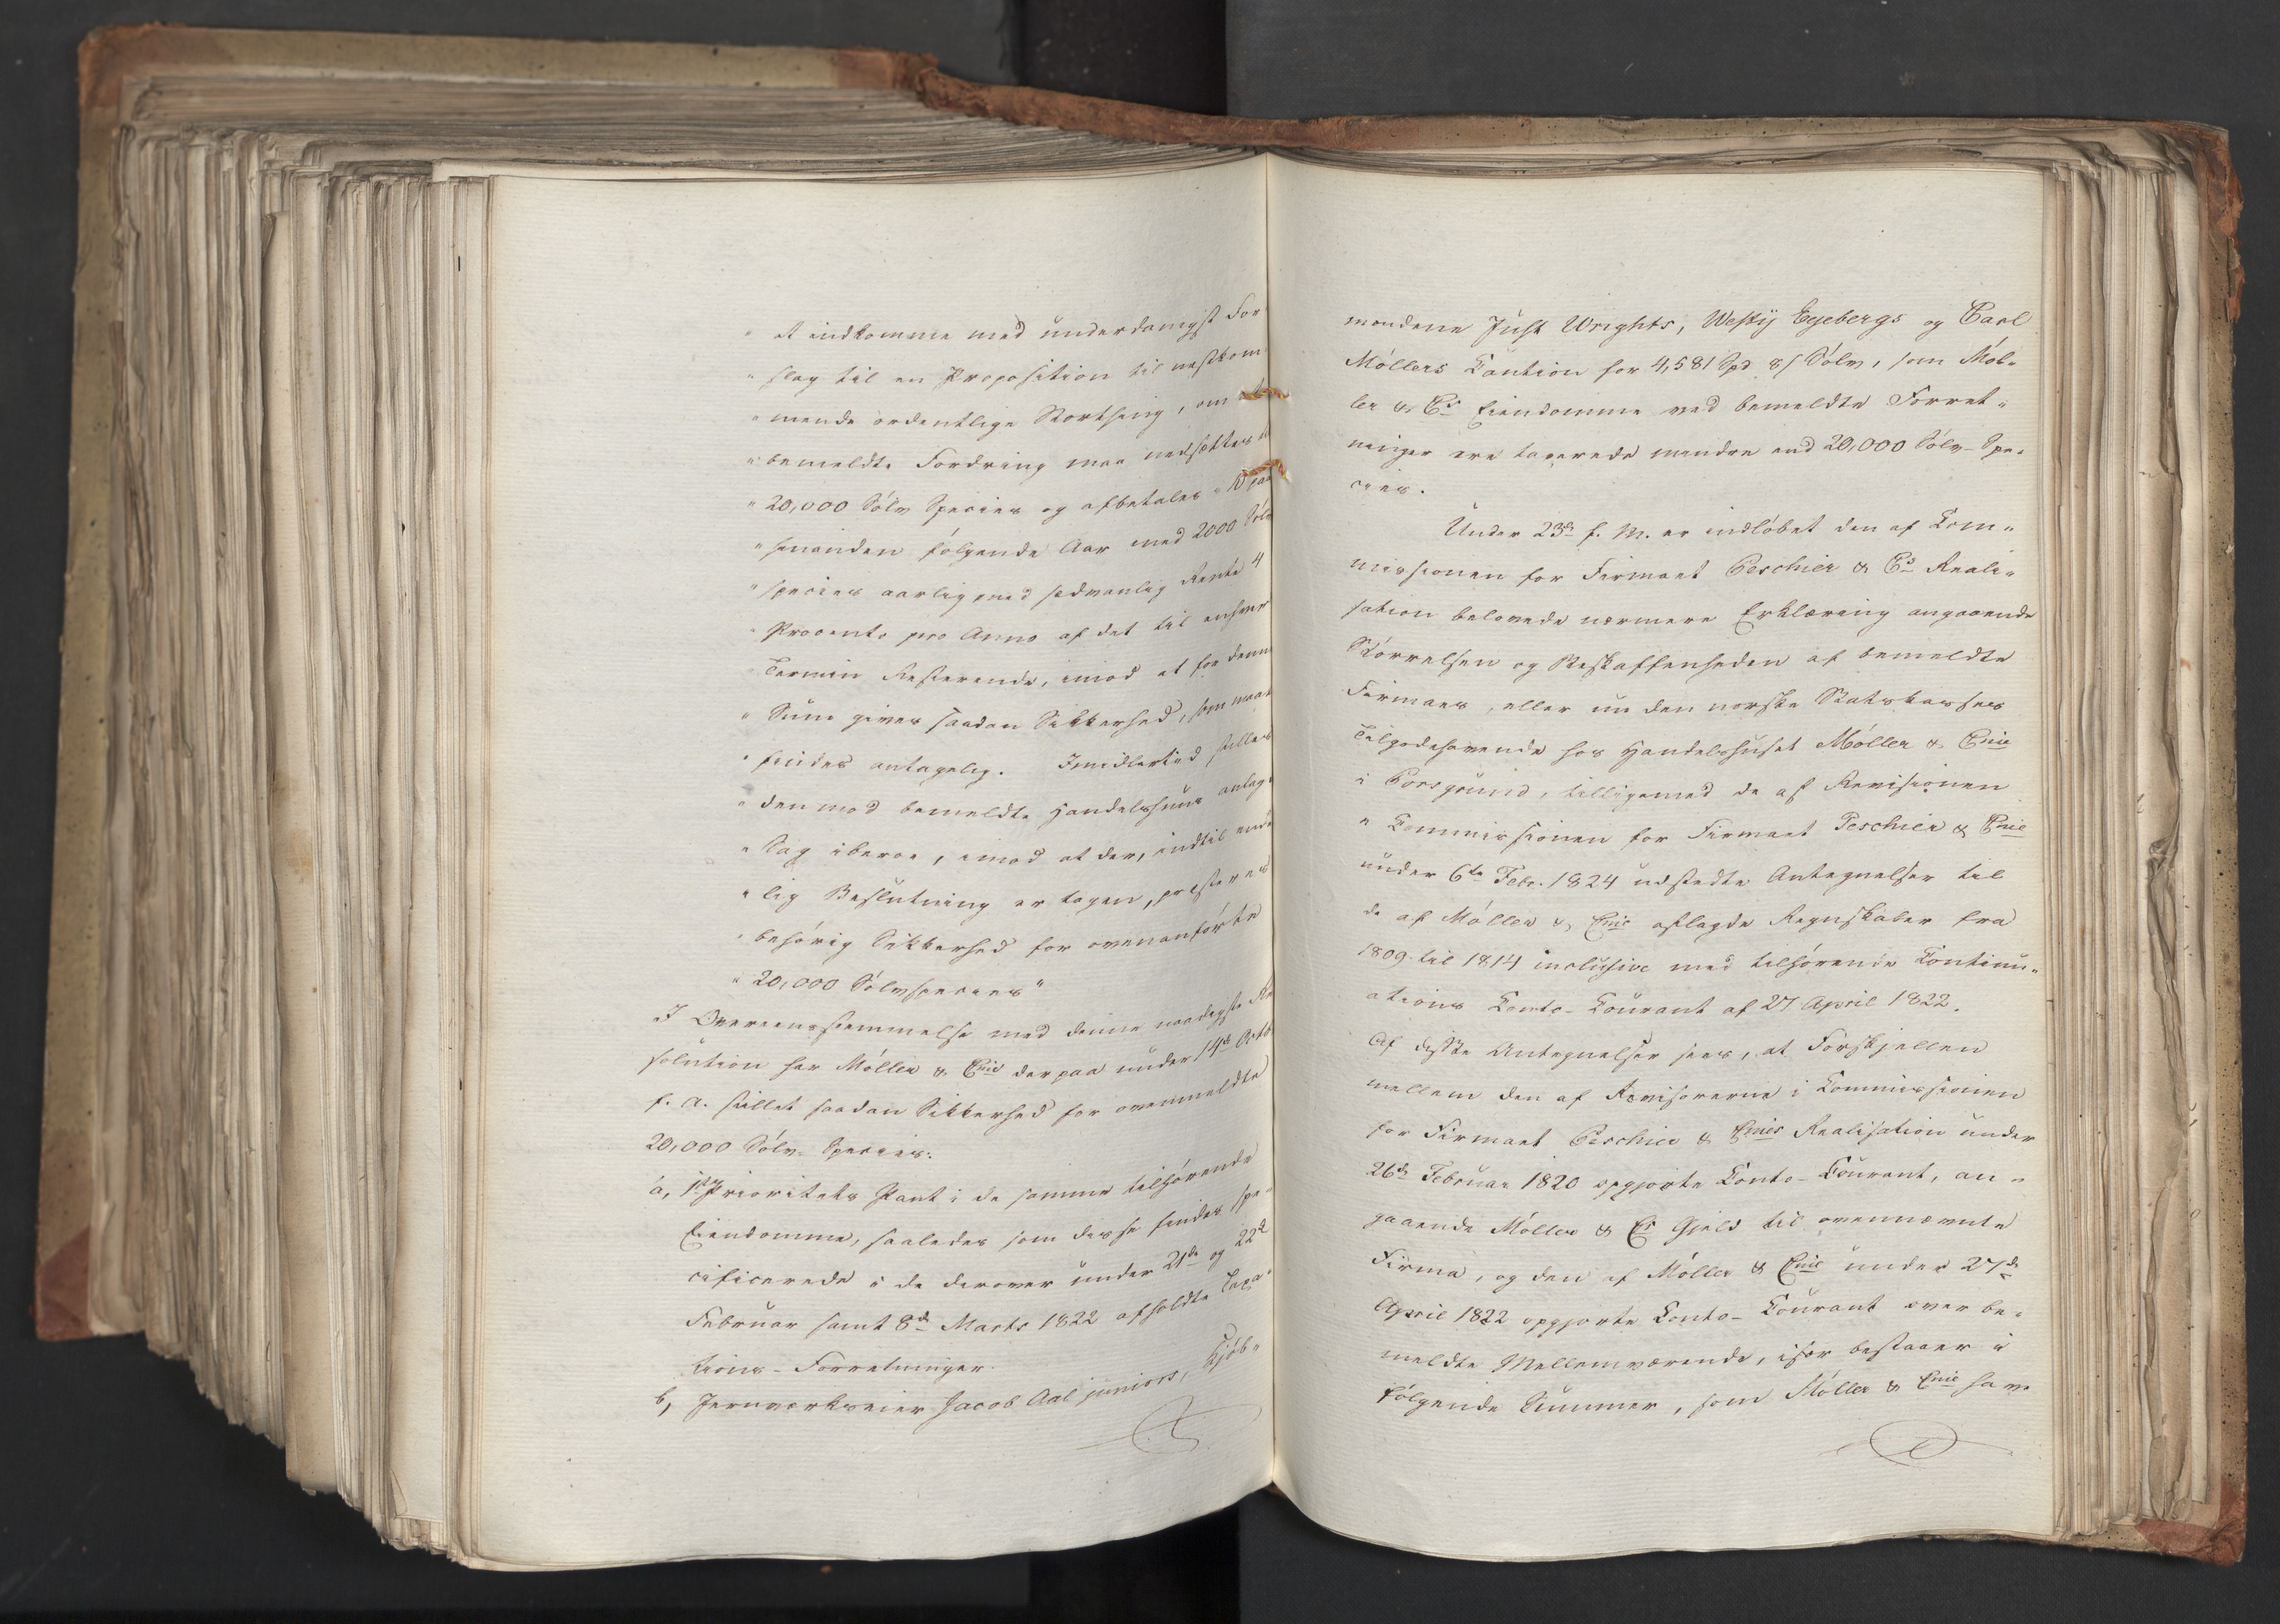 " at indkomme med underdanigst For
" slag til en Proposition til nestkom
" mende ordentlige Storthing, om at
" bemeldte Fordring maa nedsættes til
" 20,000 Sölv Species og afbetales i 10 paa
" hinanden fölgende Aar med 2000 Sölv
" species aarlig med sædvanlig Rente 4
" Procento pro Anno af det til enhver
" Termin Resterende, imod at for denne
" Sum gives saadan Sikkerhed, som maat
" findes antagelig. Imidlertid stilles
" den mod bemeldte Handelshuus anlag-
" Sag iberoe, imod at der, indtil ende
" lig Beslutning er tagen, præsteres
" behörig Sikkerhed for ovenanförte
" 20,000 Sölvspecies"
I Overeensstemmelse med denne naadigste Re
solution har Möller & Cnie derpaa under 14de Octb
f. A. stillet saadan Sikkerhed for ovenmeldte
20,000 Sölv- Species:
a, 1st Prioritets Pant i de samme tilhörende
Eiendomme, saaledes som disse findes spe-
cificerede i de derover under 21de og 22d
Februar samt 8de Marts 1822 afholdte Taxa-
tions-Forretninger.
b, Jernværkseier Jacob Aal juniors, Kjöb-
mændene Just Wrights, Westÿ Egebergs og Carl
Möllers Caution for 4,581 Spd 8 s Sölv, som Möl-
ler & Cs Eiendomme ved bemeldte Forret-
ninger ere taxerede mindre end 20,000 Sölv-Spe-
cies.
Under 23de f. M. er indlöbet den af Com-
missionen for Firmaet Peschier & Cs Reali-
sation belovede nærmere Erklæring angaaende
Störrelsen og Beskaffenheden af bemeldte
Firmaes, eller nu den norske Statskasses
Tilgodehavende hos Handelshuset Möller & Cnie
i Porsgrund, tilligemed de af Revisionen
i Commissionen for Firmaet Peschier & Cnie
under 6te Febr. 1824 udstedte Antegnelser til
de af Möller & Cnie aflagde Regnskaber fra
1809 til 1814 inclusive med tilhörende Continu-
ations Conto-Courant af 27 April 1822.
Af disse Antegnelser sees, at Forskjellen
mellem den af Revisorerne i Commissionen
for Firmaet Peschier & Cnies Realisation under
26de Februar 1820 opgjorte Conto-Courant, an-
gaaende Möller & Cs Gjeld til ovennævnte
Firma, og den af Möller & Cnie under 27de
April 1822 opgjorte Conto-Courant over be-
meldte Mellemværende, især bestaaer i
fölgende Summer, som Möller & Cnie have